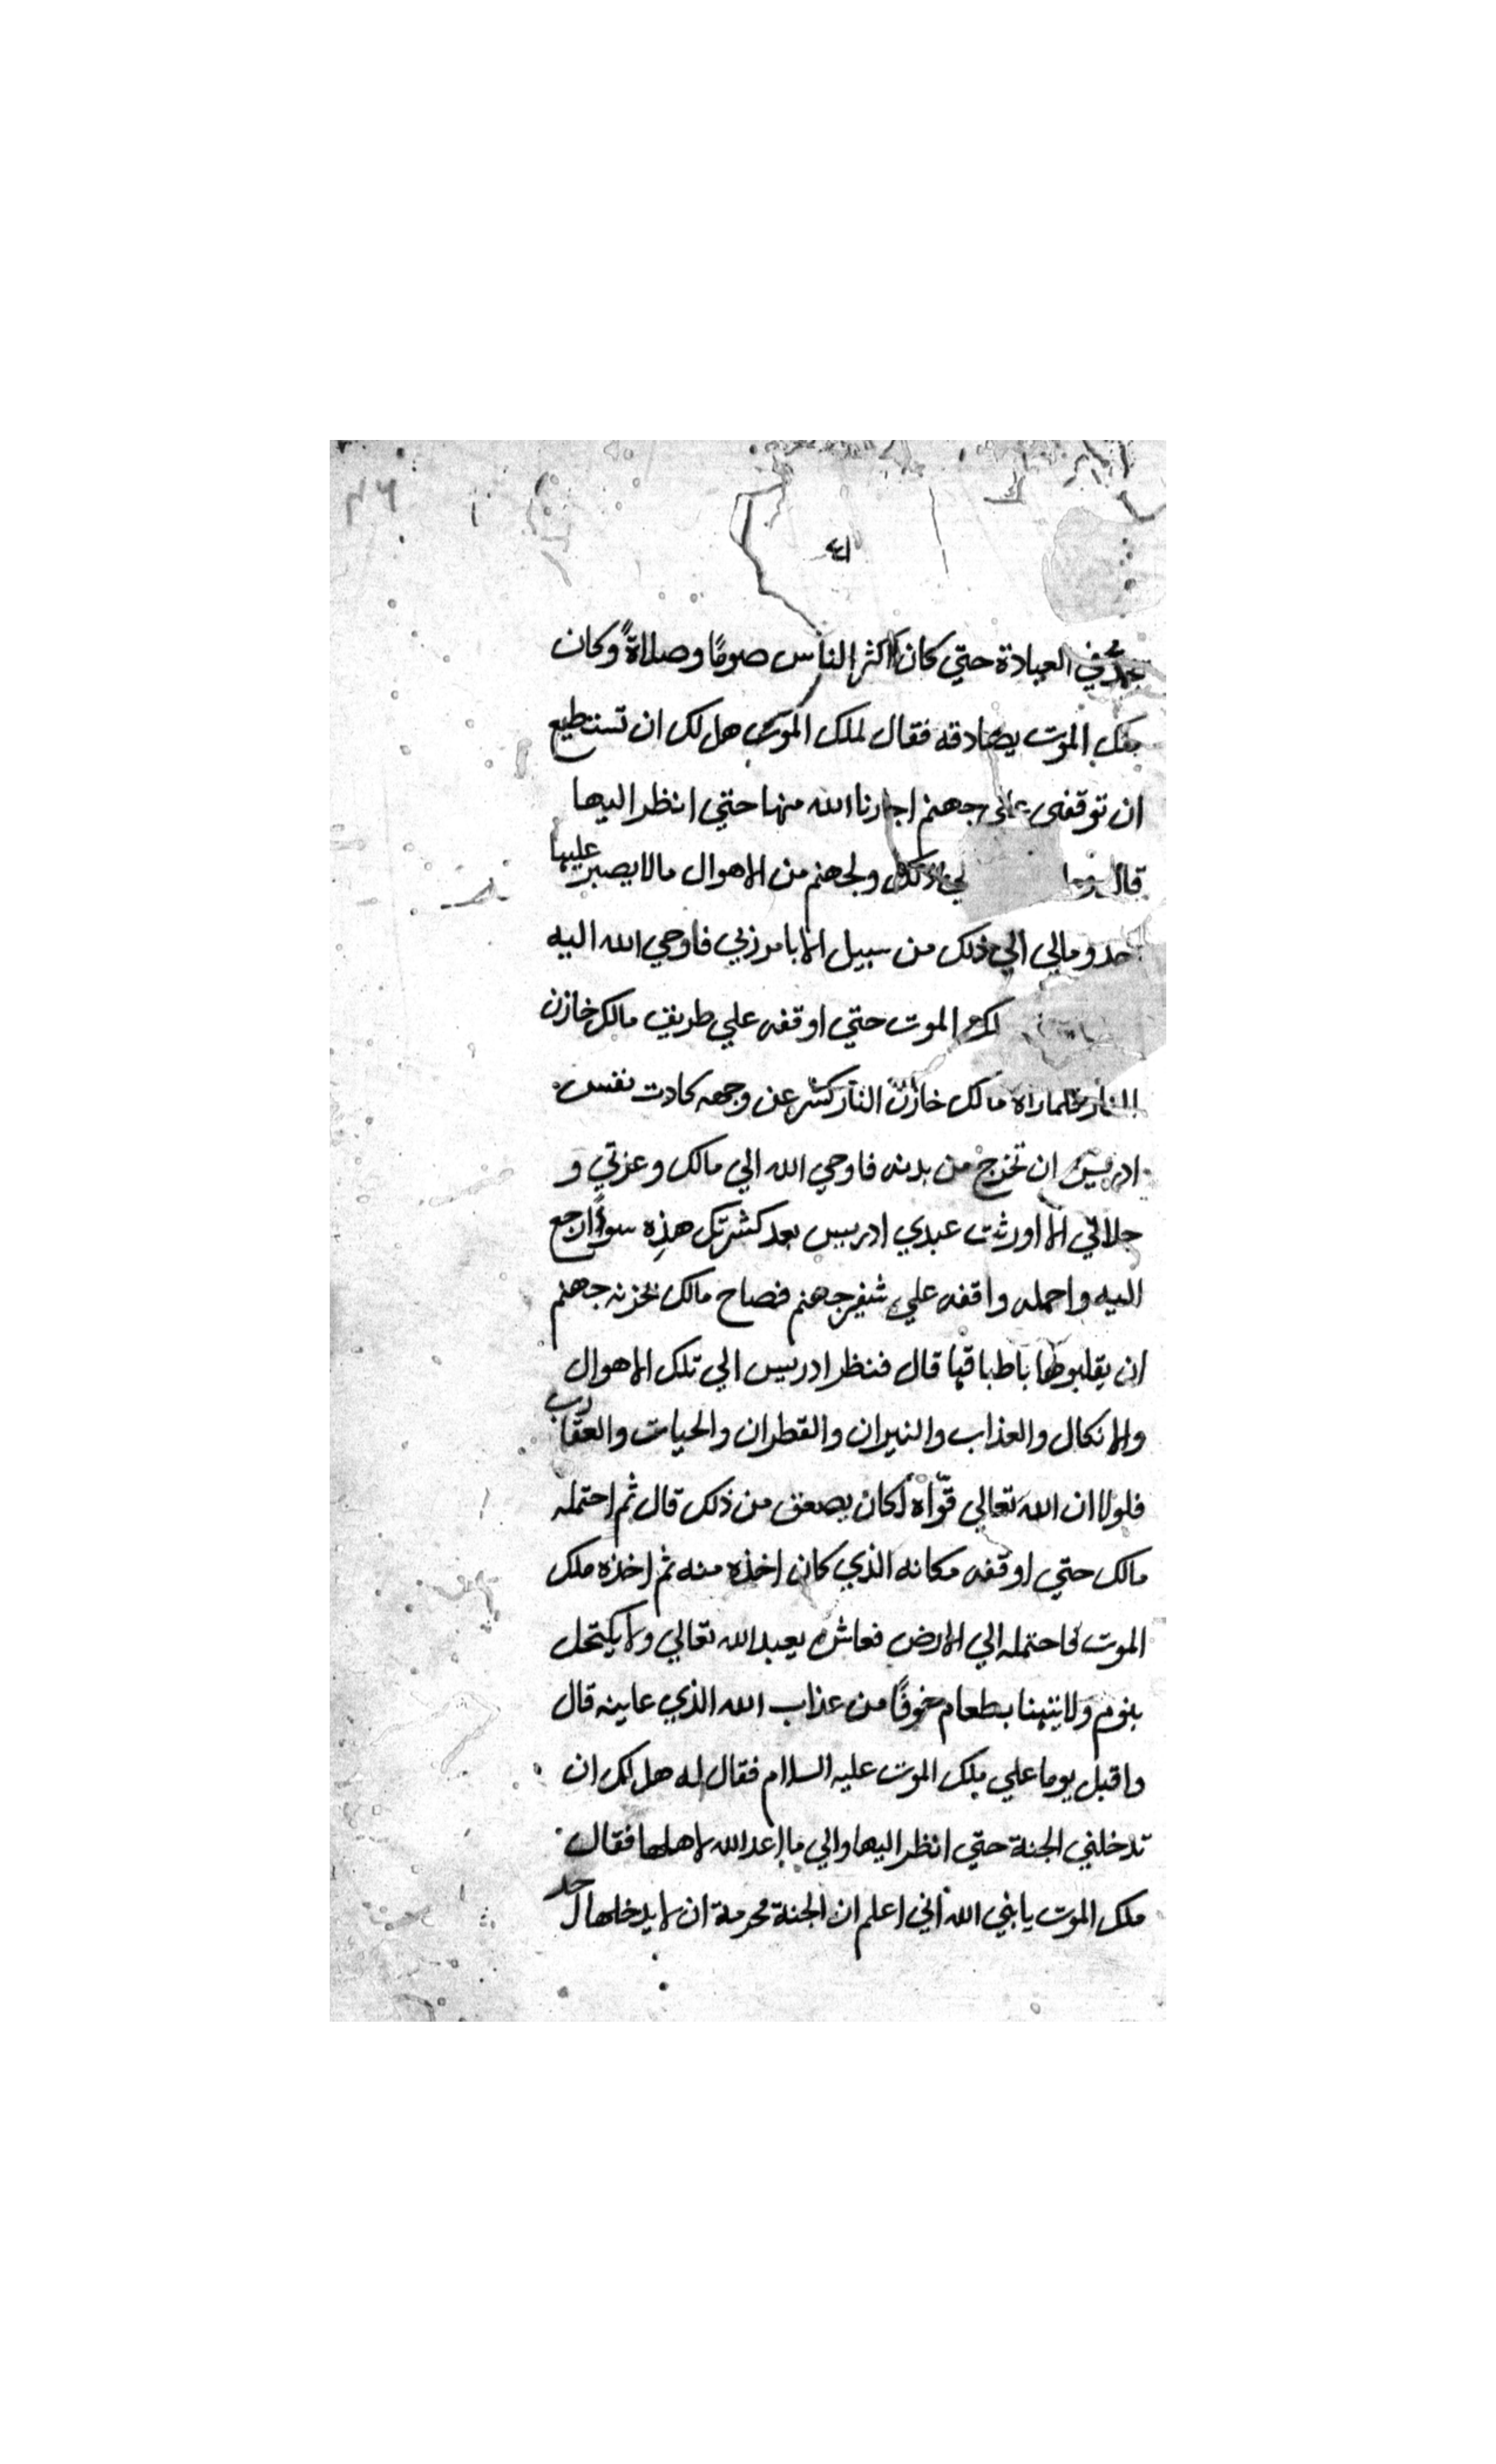 ٤١
في العبادة حتي كان اكثر الناس صومًا وصلاةً وكان
ملك الموت يصادقه فقال لملك الموت هل لك ان تستطيع
ان توقفني علي جهنم اجارنا الله منها حتي انظر اليها
قال وما لي ذلك ولجهنم من الاهوال مالا يصبر عليها
احد ومالي الي ذلك من سبيل الا بامر ربي فاوحي الله اليه
الموت حتي اوقفه علي طريق مالك خازن
النار فلما راه مالك خازن النار كشر عن وجهه كادت نفس
ادريس ان تخرج من بدنه فاوحي الله الي مالك وعزتي و
جلالي لا اورثت عبدي ادريس بعد كشرتك هذِه سوءًا ارجع
اليه واحمله واقفه علي شفير جهنم فصاح مالك بخزنه جهنم
ان يقلبوها باطباقها قال فنظر ادريس الي تلك الاهوال
والانكال والعذاب والنيران والقطران والحيات والعقارب
فلولا ان الله تعالي قوّاه لكان يصعق من ذلك قال ثم احتمله
مالك حتي اوقفه مكانه الذي كان اخذه منه ثم اخذه ملك
الموت فاحتمله الي الارض فعاش يعبد الله تعالي ولا يكتحل
بنوم ولا يتهنا بطعام خوفًا من عذاب الله الذي عاينه قال
واقبل يوما علي ملك الموت عليه السلام فقال له هل لك ان
تدخلني الجنة حتي انظر اليها والي ما اعد الله لاهلها فقال
ملك الموت يا بني الله اني اعلم ان الجنة محرمة ان لا يدخلها احد